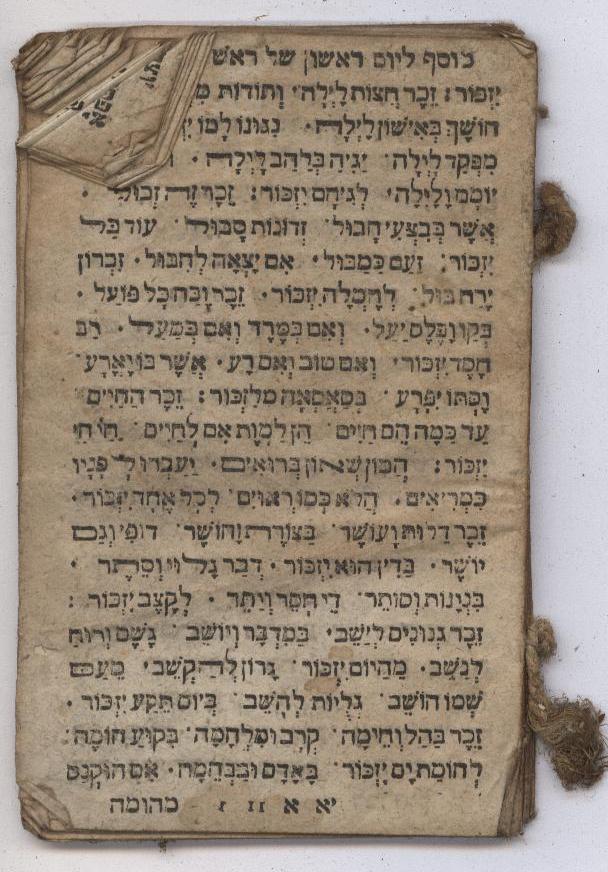 מוסף ליום ראשון של ראש
יזכור: זֵכֶר חֲצוֹת לַיְלָה׳ וְתוֹדוֹת
חוֹשֶׁךְ בְּאִישׁוֹן לַיְלָה· נִגּוּנוֹ לָמוֹ
מִפְּקַד לַיְלָה׳ יַגִּיהַּ כְּלַהַב לַיְלָה·
יוֹמָם וָלַיְלָה׳ יִזְכּוֹר:
אֲשֶׁר בְּבִצְעֵי חָבוּל׳ זְדוֹנוֹת סָבוּל׳ עוֹד בַּל
יִזְכּוֹר׳ זַעַם כְּמַבּוּל׳ אִם יָצְאָה לְחַבּוּל· זִכְרוֹן
יֶרַח בּוּל׳ לְחֶמְלָה יִזְכּוֹר· זֵכֶר וּבֹחַ כָּל פּוֹעַל·
בְּקַו וָפֶלֶס יַעַל· וְאִם בְּמֶרֶד וְאִם בְּמַעַל· רַב
חֶסֶד יִזְכּוֹר׳ וְאִם טוֹב וְאִם רָע· אֲשֶׁר בּוֹ יֶאֱרָע׳
יִפָּרַע· בְּסַאסְּאָה מִלִּזְכּוֹר: זֵכֶר הַחַיִּים
עַד כַּמָּה הֵם חַיִּים׳ הֵן לַמָּוֶת אִם לְחַיִּים׳
יִזְכּוֹר: הֲמוֹן שְׁאוֹן בְּרוּאִים· יַעַבְרוּ לְפָנָיו
כִּמְרִיאִים· הֲלֹא כְּמוֹ רְאוּיִם׳ לְכָל אֶחָד יִזְכּוֹר·
זֵכֶר דַּלּוּת וָעוֹשֶׁר׳ בַּצּוֹרֶת וְחוֹשֶׁר׳ דּוֹפִי וְגַם
יוֹשֶׁר· בַּדִּין הוּא יִזְכּוֹר· דְּבַר גָּלוּי וְסֵתֶר·
בִּנְיָנוֹת וְסוֹתֵר׳ דֵּי חֶסֶר וְיֶתֶר· לְקֶצֶב יִזְכּוֹר:
זֵכֶר גְּנוּנִים לְיַשֵּׁב· בְּמִדְבָּר וְיוֹשֵׁב׳ גֶּשֶׁם וְרוּחַ
לְנַשֵּׁב· מֵהַיּוֹם יִזְכּוֹר׳ גָּרוֹן לְהַקְשֵׁב׳ מֵעַם
שְׁמוֹ חוֹשֵׁב׳ גָּלֻיּוֹת לְהָשֵׁב׳ בְּיוֹם תֵּקַע יִזְכּוֹר·
זֵכֶר בֶּהָל וְחֵימָה׳ קְרָב וּמִלְחָמָה׳ בְּקוֹעַ חוֹמָה׳
לְחוֹמָתַיִם יִזְכּוֹר׳ בָּאָדָם וּבַבְּהֵמָה· אִם הוּקְנַם
יא א מהומה